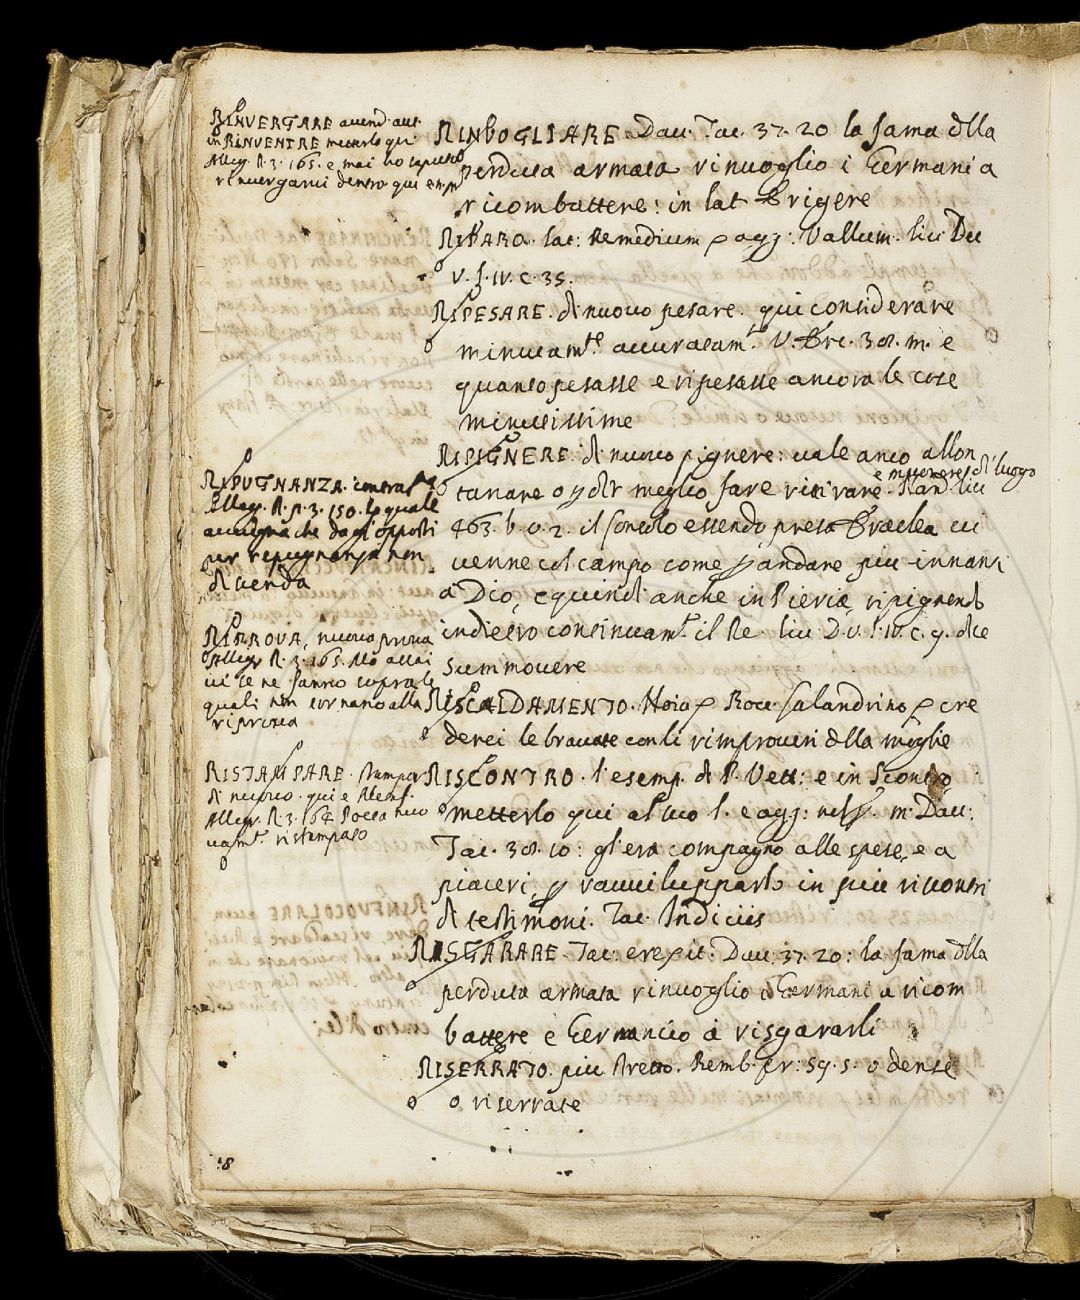 RINVERGARE avend. aut.
in RINVENIRE meterlo qui
Alleg. R. 3. 165. e mai ho saputo
rinvergarvi dentro qui
RINVOGLIARE Dav. Tac. 37. 20 la fama dlla
perduta armata rinvoglio i Germani a
ricombattere: in lat Erigere
RIPARO. lat: Remedium p agg: Vallum. liv. Dec
V. l. IV. c. 35.
RIPESARE. di nuovo pesare. qui considerare
minutamte accuratamte. V. Erc. 308. m. e
quanto pesasse e ripesasse ancora le cose
minutissime
RIPIGNERE. di nuovo pignere: vale anco allon
tanare o p dir meglio fare ritirare e muovere di luogo Nar. liv
463. b. v. 2. il Consolo essendo presa Eraclea vi
venne col campo come p andare piu innanzi
a Dio, e quindi anche in Pieria, ripignendo
indietro continuamte il Re. liv. D. V. l. IV. c. 9. dice
summovere
RIPUGNANZA. contrasto
Alleg. R. p. 3. 150. la quale
avvegna che dagl'opposti
per repugnanza non
divenga
RIPROVA, nuova prova
Alleg. R. 3. 165. Ma assai
vi se ne fanno sopra le
quali non tornano alla
riprova
RISCALDAMENTO. Noia p Roce. Salandrino p cre
derei le bravate con li rimproveri dlla moglie
RISTAMPARE. stampar
di nuovo. qui e
Alleg. R. 3. 164 nuo
vamte ristampato
RISCONTRO. l'esemp. di P. Vett: e in Scontro
metterlo qui al suo l. e agg: m. Dav:
Tac. 38. 10: gl'era compagno alle spese, e a
piaceri, p ravvilupparlo in piu riscontri
di testimoni. Tac. Indiciis
RISGARARE. Tac: erexit: Dav: 37. 20: la fama dlla
perduta armata rinvoglio i Germani a ricom
battere e Germanico a risgararli
RISERRATO. piu stretto. Remb. pr: 59. 5. o dense
o riserrate
18